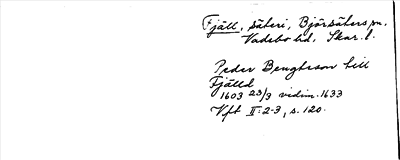 Fjäll, säteri, Björsäters sn.
Vadsbo hd, Skar. l.
Peder Bengtsson till
Fjälld
1603 23/3 vidim. 1633
Vft II:2-3, s. 120.